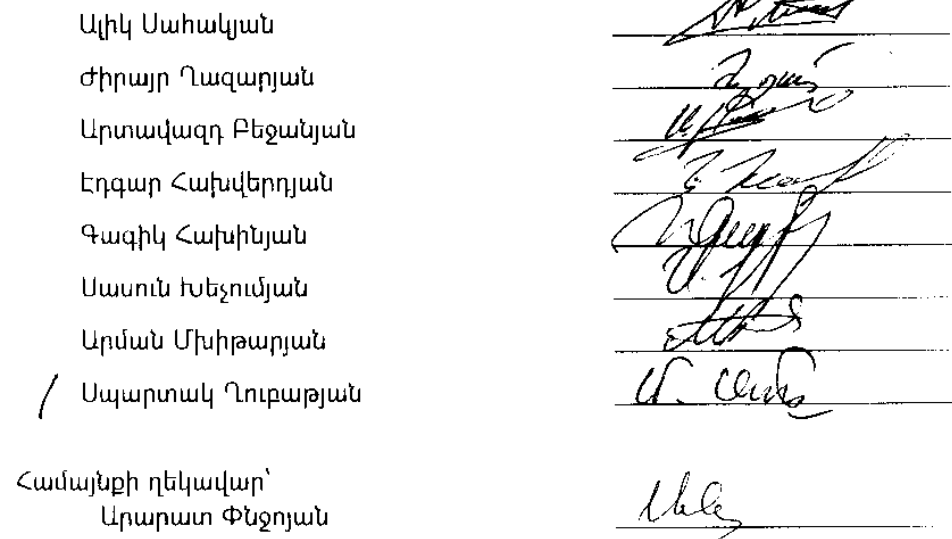 Ալիկ Սահակյան
Ժիրայր Ղազարյան
Արտավազդ Բեջանյան
Էդգար Հախվերդյան
Գագիկ Հախինյան
Սասուն Խեչումյան
Արման Մխիթարյան
Սպարտակ Ղուբաթյան
Համայնքի ղեկավար՝
Արարատ Փնջոյան